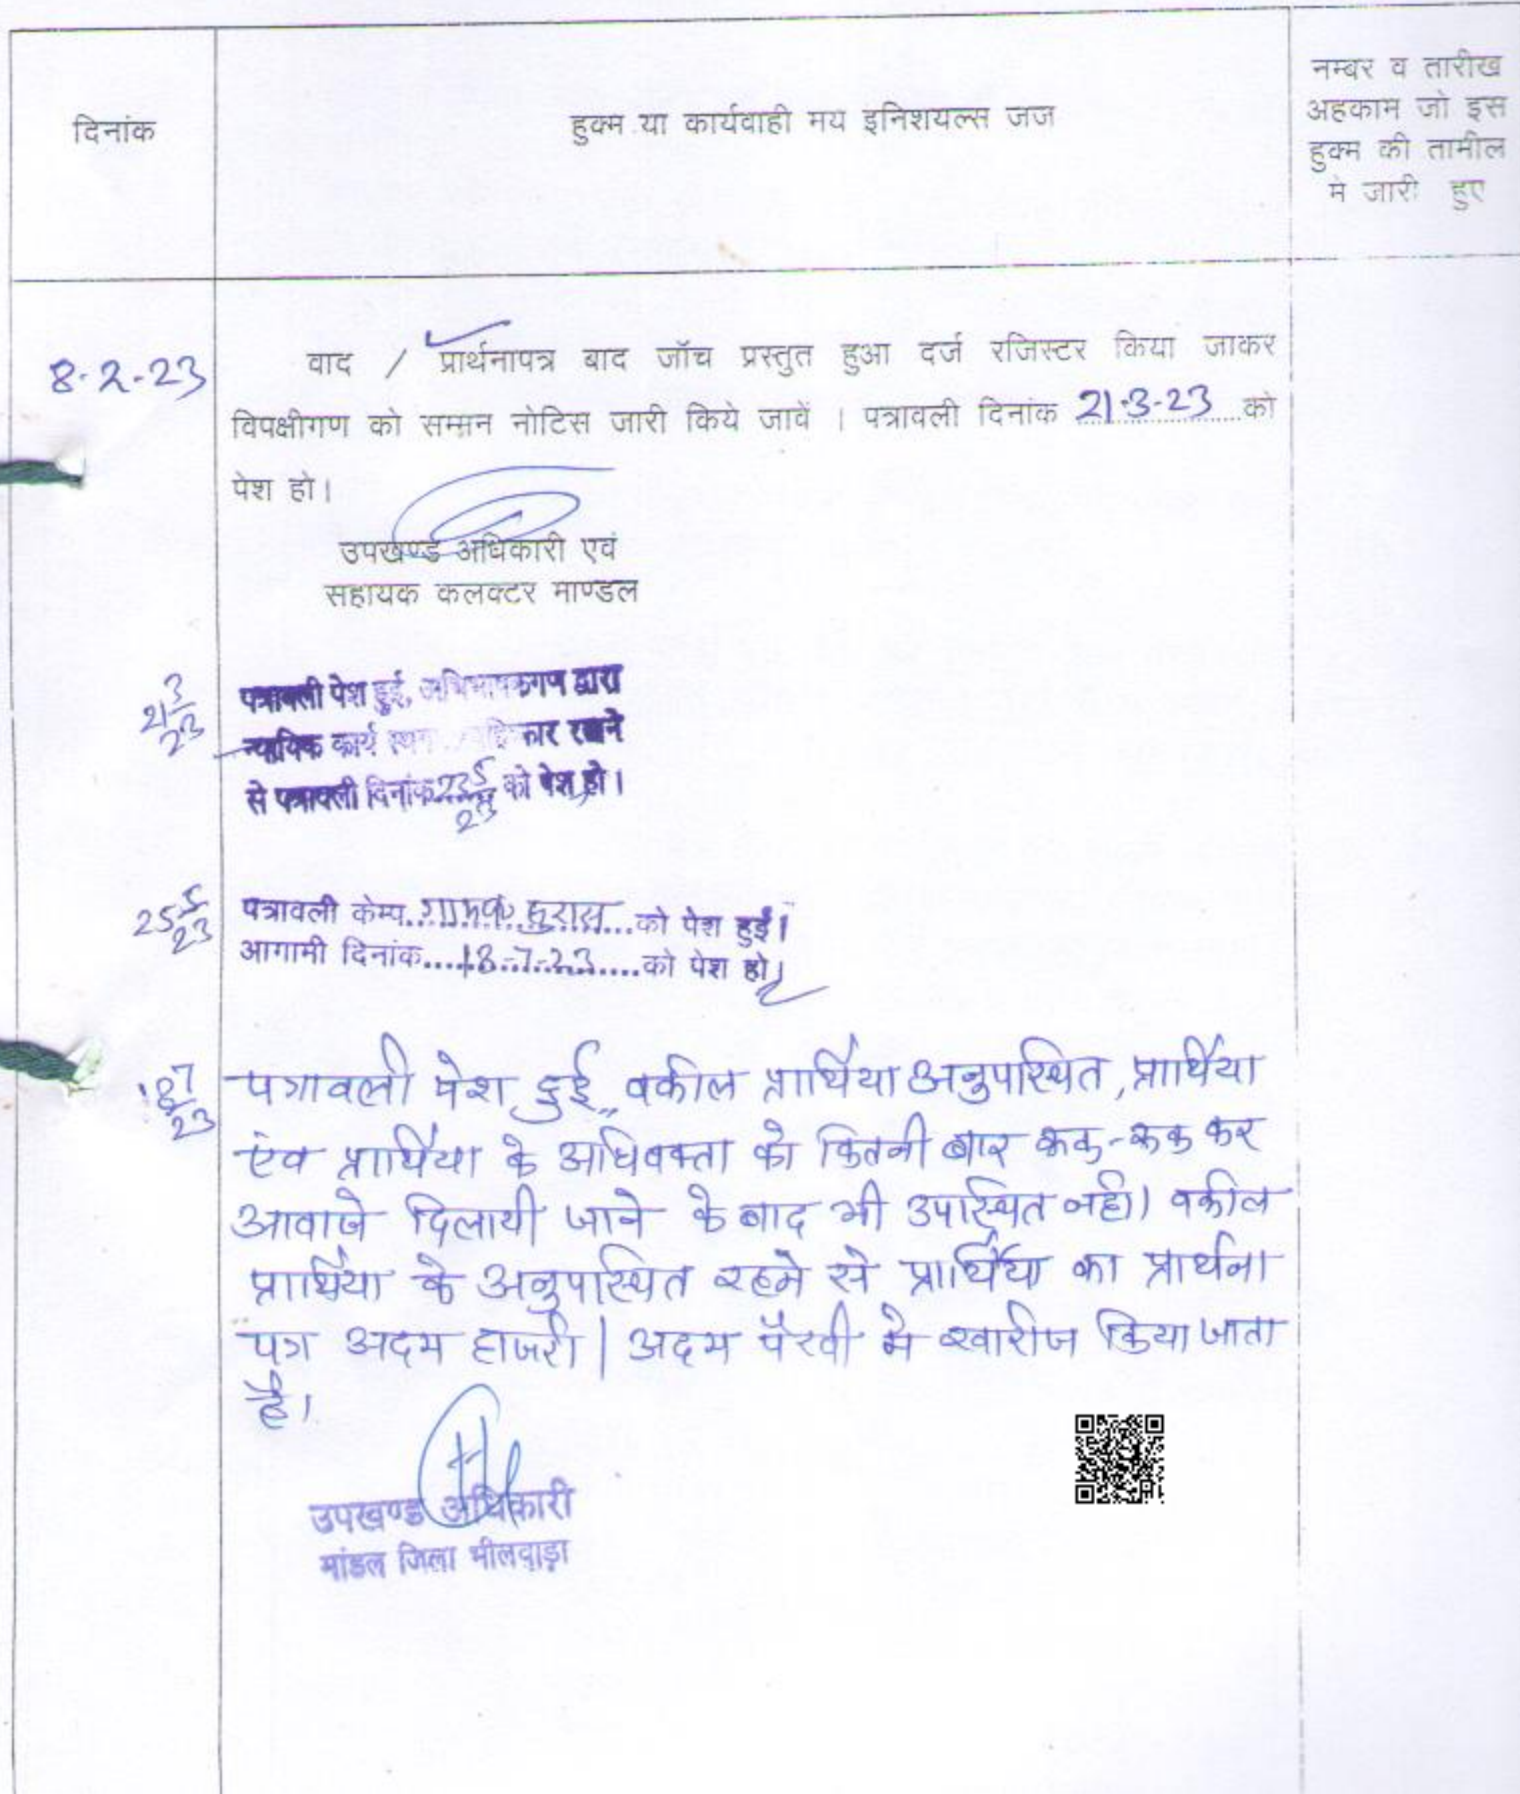 दिनांक
हुक्म या कार्यवाही मय इनिशयल्स जज
नम्बर व तारीख
अहकाम जो इस
हुक्म की तामील
मे जारी हुए
8-2-23
वाद / प्रार्थनापत्र बाद जॉच प्रस्तुत हुआ दर्ज रजिस्टर किया जाकर
विपक्षीगण को सम्मन नोटिस जारी किये जावें । पत्रावली दिनांक 21-3-23 को
पेश हो।
उपखण्ड अधिकारी एवं
सहायक कलक्टर माण्डल
21 3/23
पत्रावली पेश हुई, अभिभाषकगण द्वारा
न्यायिक कार्य रखने
से पत्रावली दिनांक को पेश हो।
25 5/23
पत्रावली केम्प को पेश हुई।
आगामी दिनांक 18-7-23 को पेश हो
18 7/23
पत्रावली पेश हुई,, वकील प्रार्थिया अनुपस्थित, प्रार्थिया
एंव प्रार्थिया के अधिवक्ता को कितनी बार रूक-रूक कर
आवाजे दिलायी जाने के बाद भी उपस्थित नही। वकील
प्रार्थिया के अनुपस्थित रहने से प्रार्थिया का प्रार्थना
पत्र अदम हाजरी | अदम पैरवी मे खारीज किया जाता
है।
उपखण्ड अधिकारी
मांडल जिला भीलवाड़ा